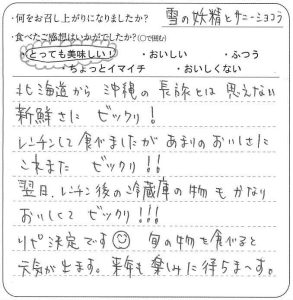 ・何をお召し上がりになりましたか？ 雪の妖精とサニーショコラ
・食べたご感想はいかがでしたか？(○で囲む)
・とっても美味しい！ ・おいしい ・ふつう
・ちょっとイマイチ ・おいしくない
北海道から沖縄の長旅とは思えない
新鮮さに ビックリ！
レンチンして食べましたが あまりのおいしさに
これまた ビックリ！！
翌日、レンチン後の冷蔵庫の物もかなり
おいしくて ビックリ！！！
リピ決定です 旬の物を食べると
元気が出ます。来年も楽しみに待ちまーす。